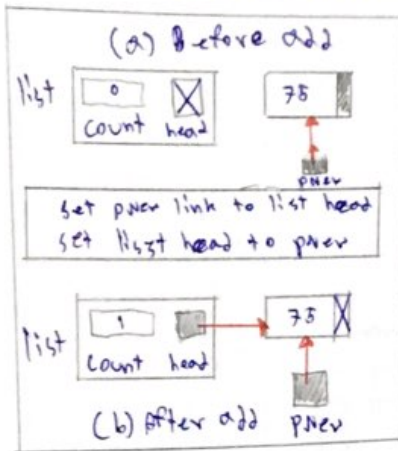 (a) Before add
list
0
75
count head
pNew
set pNew link to list head
set list head to pNew
1
75
list
count head
(b) After add pNew